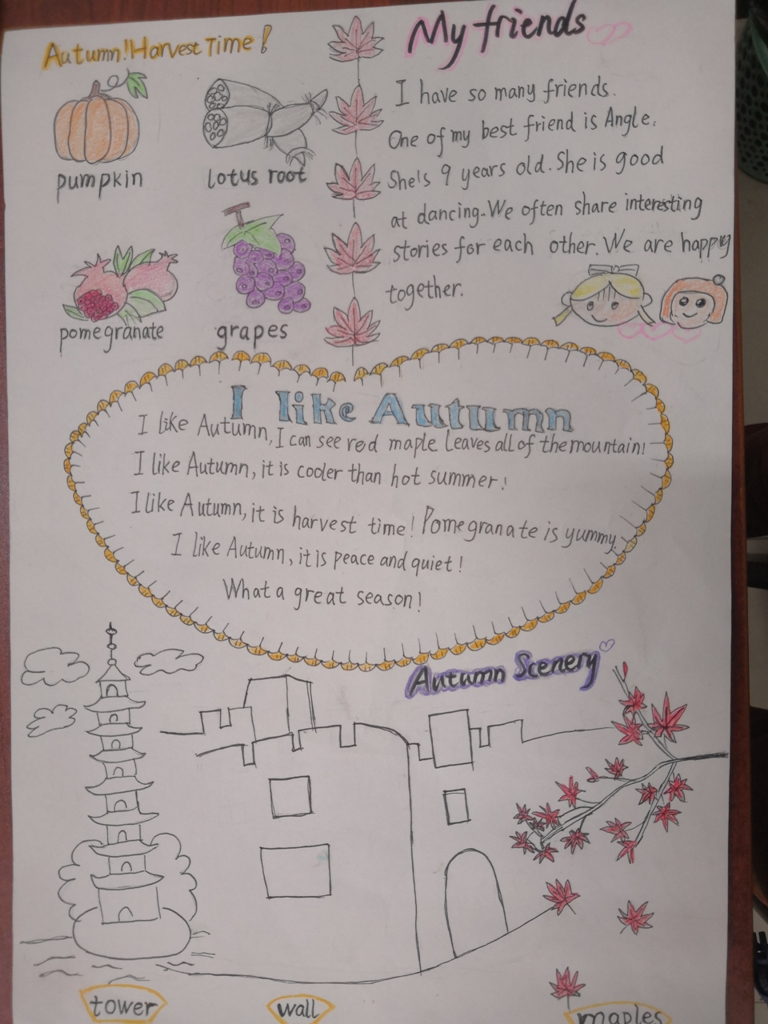 Autumn! Harvest Time!
pumpkin
lotus root
pomegranate
grapes
My friends
I have so many friends.
One of my best friend is Angle.
She's 9 years old. She is good
at dancing. We often share interesting
stories for each other. We are happy
together.
I like Autumn
I like Autumn, I can see red maple leaves all of the mountain!
I like Autumn, it is cooler than hot summer!
I like Autumn, it is harvest time! Pomegranate is yummy.
I like Autumn, it is peace and quiet!
What a great season!
Autumn Scenery
tower
wall
maples